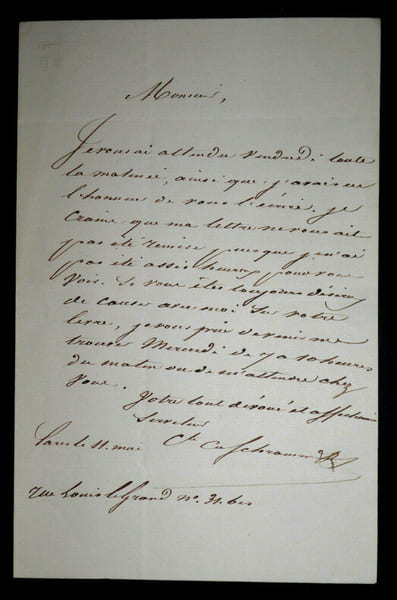 Monsieur,
Je vous ai attendu vendredi toute
la matinée, ainsi que j'avais eu
l'honneur de vous l'écrire. je
crains que ma lettre ne vous ait
pas été remise puisque je n'ai
pas été assez heureux pour vous
voir. Si vous êtes toujours désireux
de causer avec moi sur votre
livre, je vous prie de venir me
trouver Mercredi de 7 a 10 heures
du matin ou de m'attendre chez
vous.
Votre tout dévoué et affectionné
Serviteur
Paris le 11. mai
Ct. de Schramm
rue Louis le Grand No. 31. bis